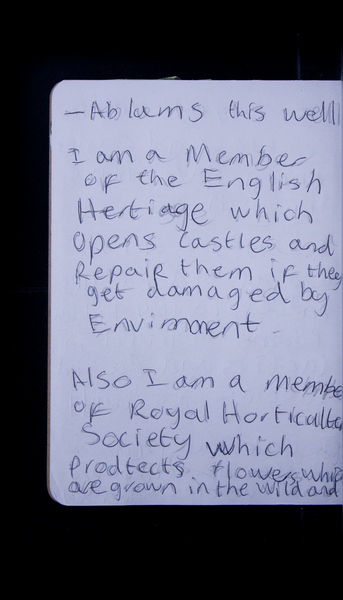 — this well
I am a Member
of the English
Hertiage which
Opens Castles and
Repair them if they
get damaged by
Envirnoment.
Also I am a membe
of Royal Horticultu
Society which
Prodtects flowers which
are grown in the wild and